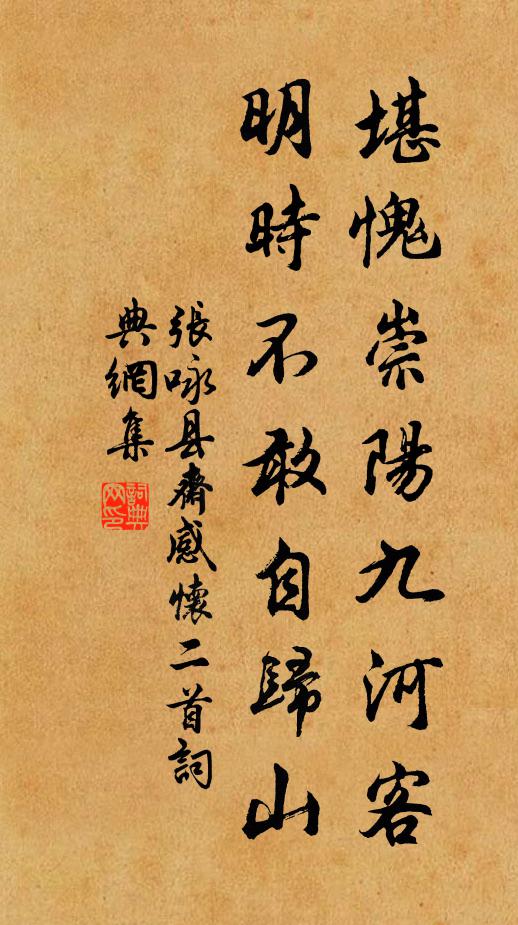 堪愧崇陽九河客
明時不敢自歸山
張咏县齋感懷二首詞
典網集
詞典網印